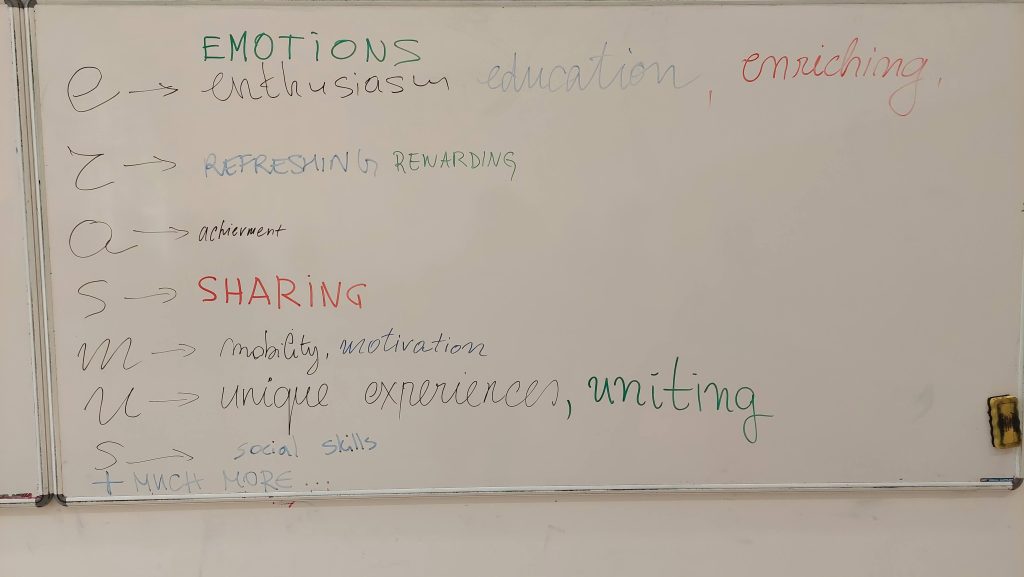 EMOTIONS
e → enthusiasm education, enriching,
r → REFRESHING REWARDING
a → achievment
s → SHARING
m → mobility, motivation
u → unique experiences, uniting
s → social skills
+ MUCH MORE ...